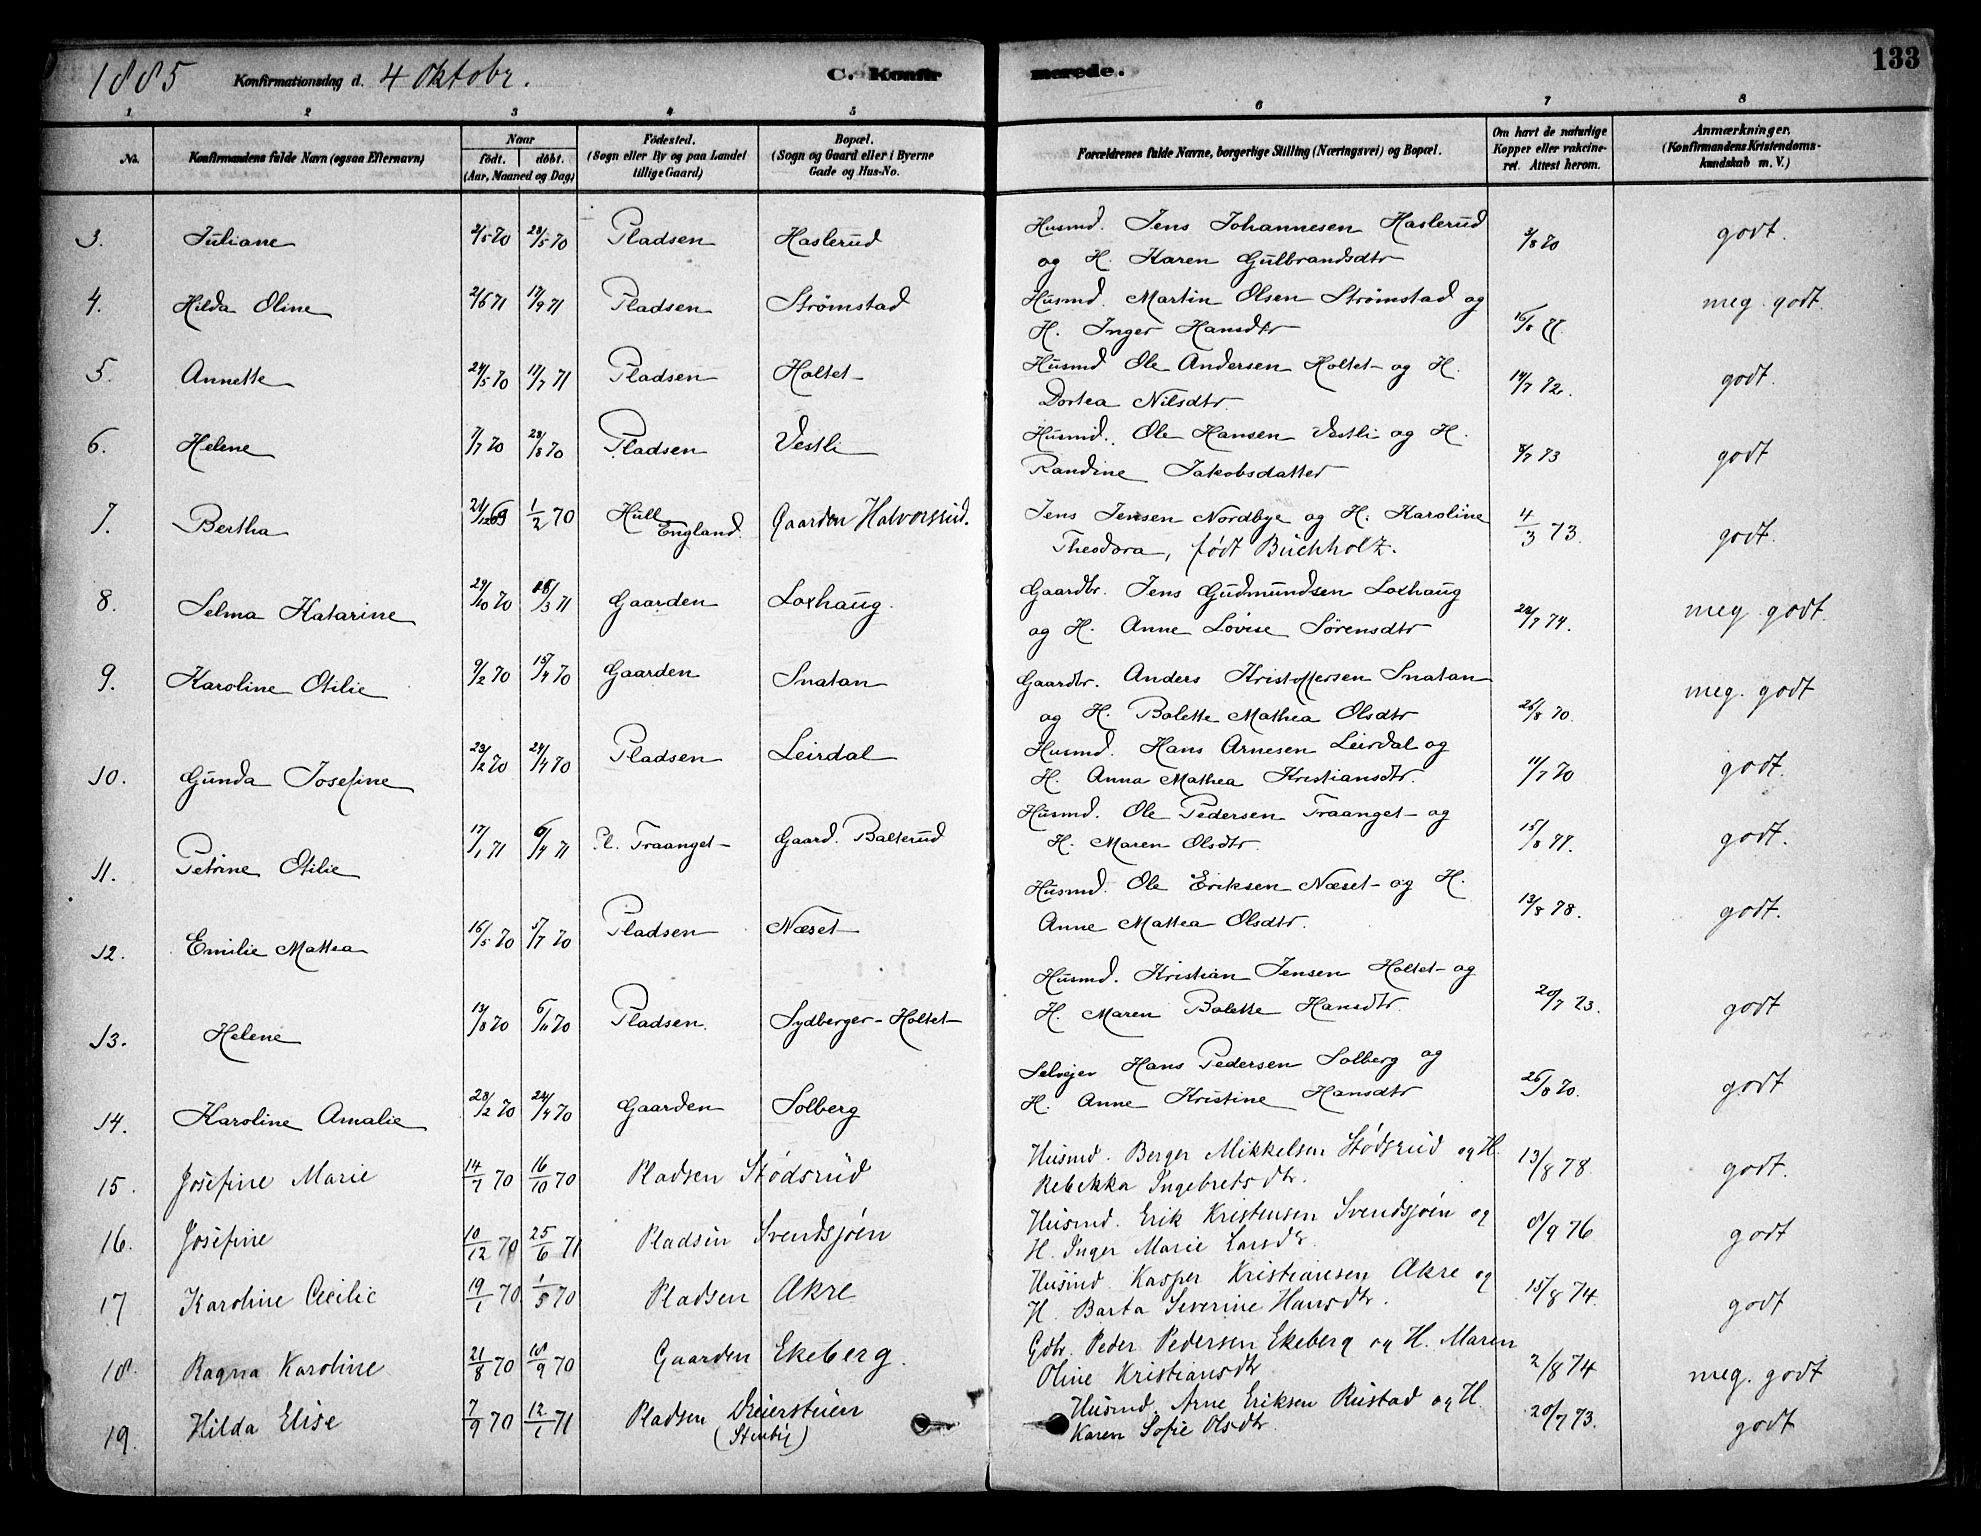 1885 Konfirmationsdag d. 4 Oktobr. C. Konfirmerede. 133
1 2 3 4 5 6 7 8
No. Konfirmandens fulde Navn (ogsaa Efternavn) Naar født. døbt. (Aar, Maaned og Dag) Fødested. (Sogn eller By og paa Landet tillige Gaard) Bopæl. (Sogn og Gaard eller i Byerne Gade og Hus-No. Forældrenes fulde Navne, borgerlige Stilling (Næringsvei) og Bopæl. Om havt de naturlige Kopper eller vakcineret. Attest herom. Anmærkninger. (Konfirmandens Kristendomskundskab m. V.)
3. Juliane 2/5 70 28/5 70 Pladsen Haslerud Husmd. Jens Johannesen Haslerud 3/8 70 godt.
og H. Karen Gulbrandsdtr
4. Hilda Oline 2/6 71 17/9 71 Pladsen Strømstad Husmd. Martin Olsen Strømstad og meg. godt.
H. Inger Hansdtr 16/8 77.
5. Annette 24/5 70 17/7 71 Pladsen Holtet Husmd Ole Andersen Holtet og H. 14/7 72. godt.
Dortea Nilsdtr.
6. Helene 7/7 70 28/8 70 Pladsen Vestli Husmd. Ole Hansen Vestli og H. 8/7 73 godt
Randine Jakobsdatter
7. Bertha 21/12 69 1/2 70 Hull England. Gaarden Halvorsrud. Jens Jensen Nordbye og H. Karoline 4/3 73. godt.
Theodora, født Buchholz.
8. Selma Katarine 29/10 70 /3 71 Gaarden Loxhaug. Gaardbr. Jens Gudmundsen Loxhaug meg godt.
og H. Anne Lovise Sørensdtr 22/7 74.
9. Karoline Otilie 9/2 70 15/4 70 Gaarden Snatan Gaardbr. Anders Kristoffersen Snatan meg. godt
og H. Bolette Mathea Olsdtr 26/8 70.
10. Gunda Josefine 23/2 70 24/4 70 Pladsen Leirdal Husmd. Hans Arnesen Leirdal og godt.
H. Anna Mathea Kristiansdtr. 11/7 70
11. Petrine Otilie 17/1 71 6/4 71 Pl. Traanget Gaard. Balterud Husmd. Ole Pedersen Traanget og 15/8 77. godt.
H. Maren Olsdtr.
12. Emilie Mattea 16/5 70 5/7 70 Pladsen Næset Husmd. Ole Eriksen Næset og H. 13/8 78. godt.
Anne Mattea Olsdtr.
13. Helene 13/8 70 6/11 70 Pladsen. Sydberger-Holtet Husmd. Kristian Jensen Holtet og 20/7 73. godt
H. Maren Bolette Hansdtr.
14. Karoline Amalie 28/2 70 24/4 70 Gaarden Solberg Selvejer Hans Pedersen Solberg og 26/8 70. godt
H. Anne Kristine Hansdtr
15. Josefine Marie 14/7 70 16/10 70 Pladsen Stødsrud Husmd. Berger Mikkelsen Stødsrud og H. 13/8 78. godt.
Rebekka Ingebretsdtr.
16. Josefine 10/12 70 25/6 71 Pladsen Svendsjøen Husmd. Erik Kristensen Svendsjøen og 8/9 76 godt
H. Inger Marie Larsdtr.
17 Karoline Cecilie 19/1 70 1/5 70 Pladsen Akre Husmd. Kasper Kristiansen Akre og 15/8 74. godt
H. Barta Severine Hansdtr.
18. Ragna Karoline 21/8 70 18/9 70 Gaarden Ekeberg. Gdbr. Peder Pedersen Ekeberg og H. Maren 2/8 74 meg. godt
Oline Kristiansdtr
19. Hilda Elise 7/9 70 12/1 71 Pladsen Dreierstuen Husmd. Arne Eriksen Rustad og H. 20/7 73. godt
(Stenby) Karen Sofie Olsdtr.